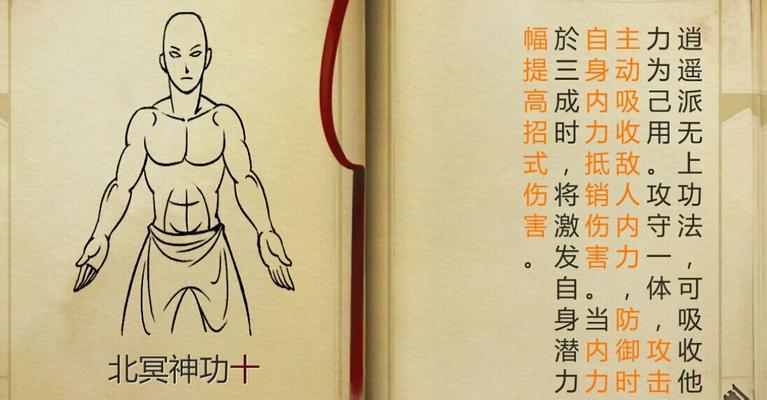 北冥神功十
逍遥派无上功法，可吸收他
力为己用。攻守一体，攻击
主动吸收敌人内力，防御时
自身内力抵销伤害。当内力
於三成时，将激发自身潜力
幅提高招式伤害。